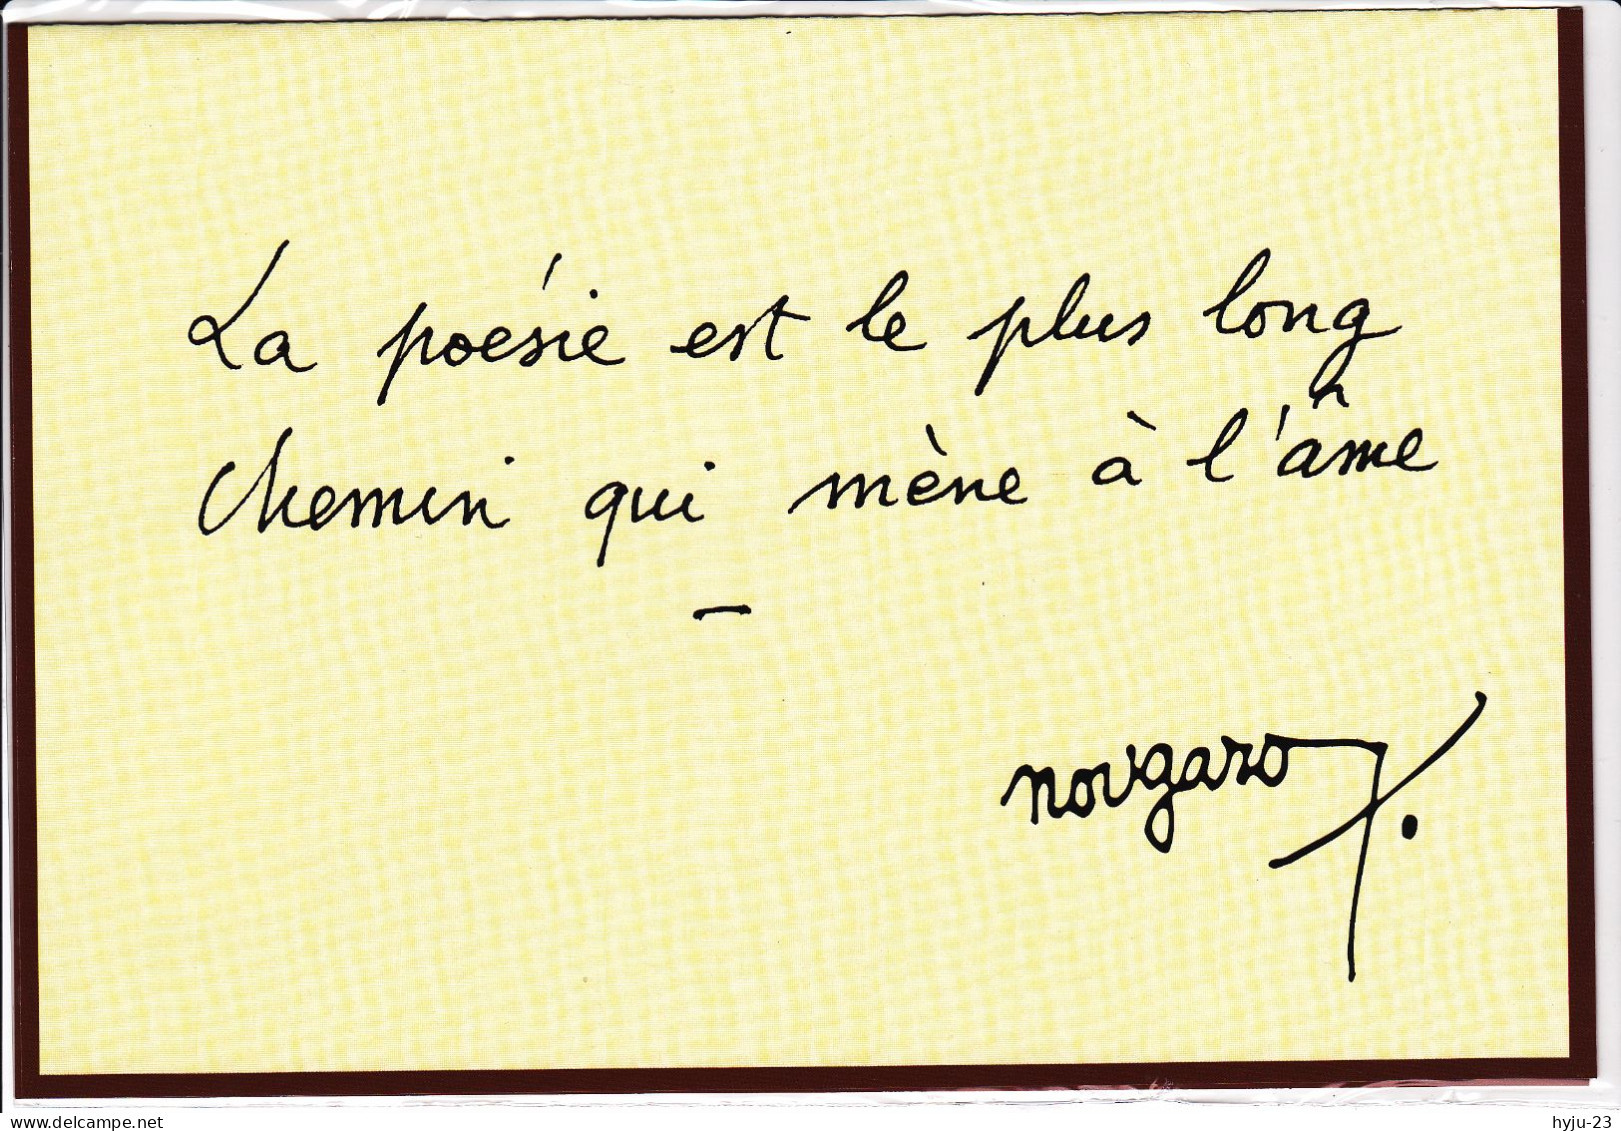 La poésie est le plus long
chemin qui mène à l'âme
–
nougaro
delcampe.net
hyju-23